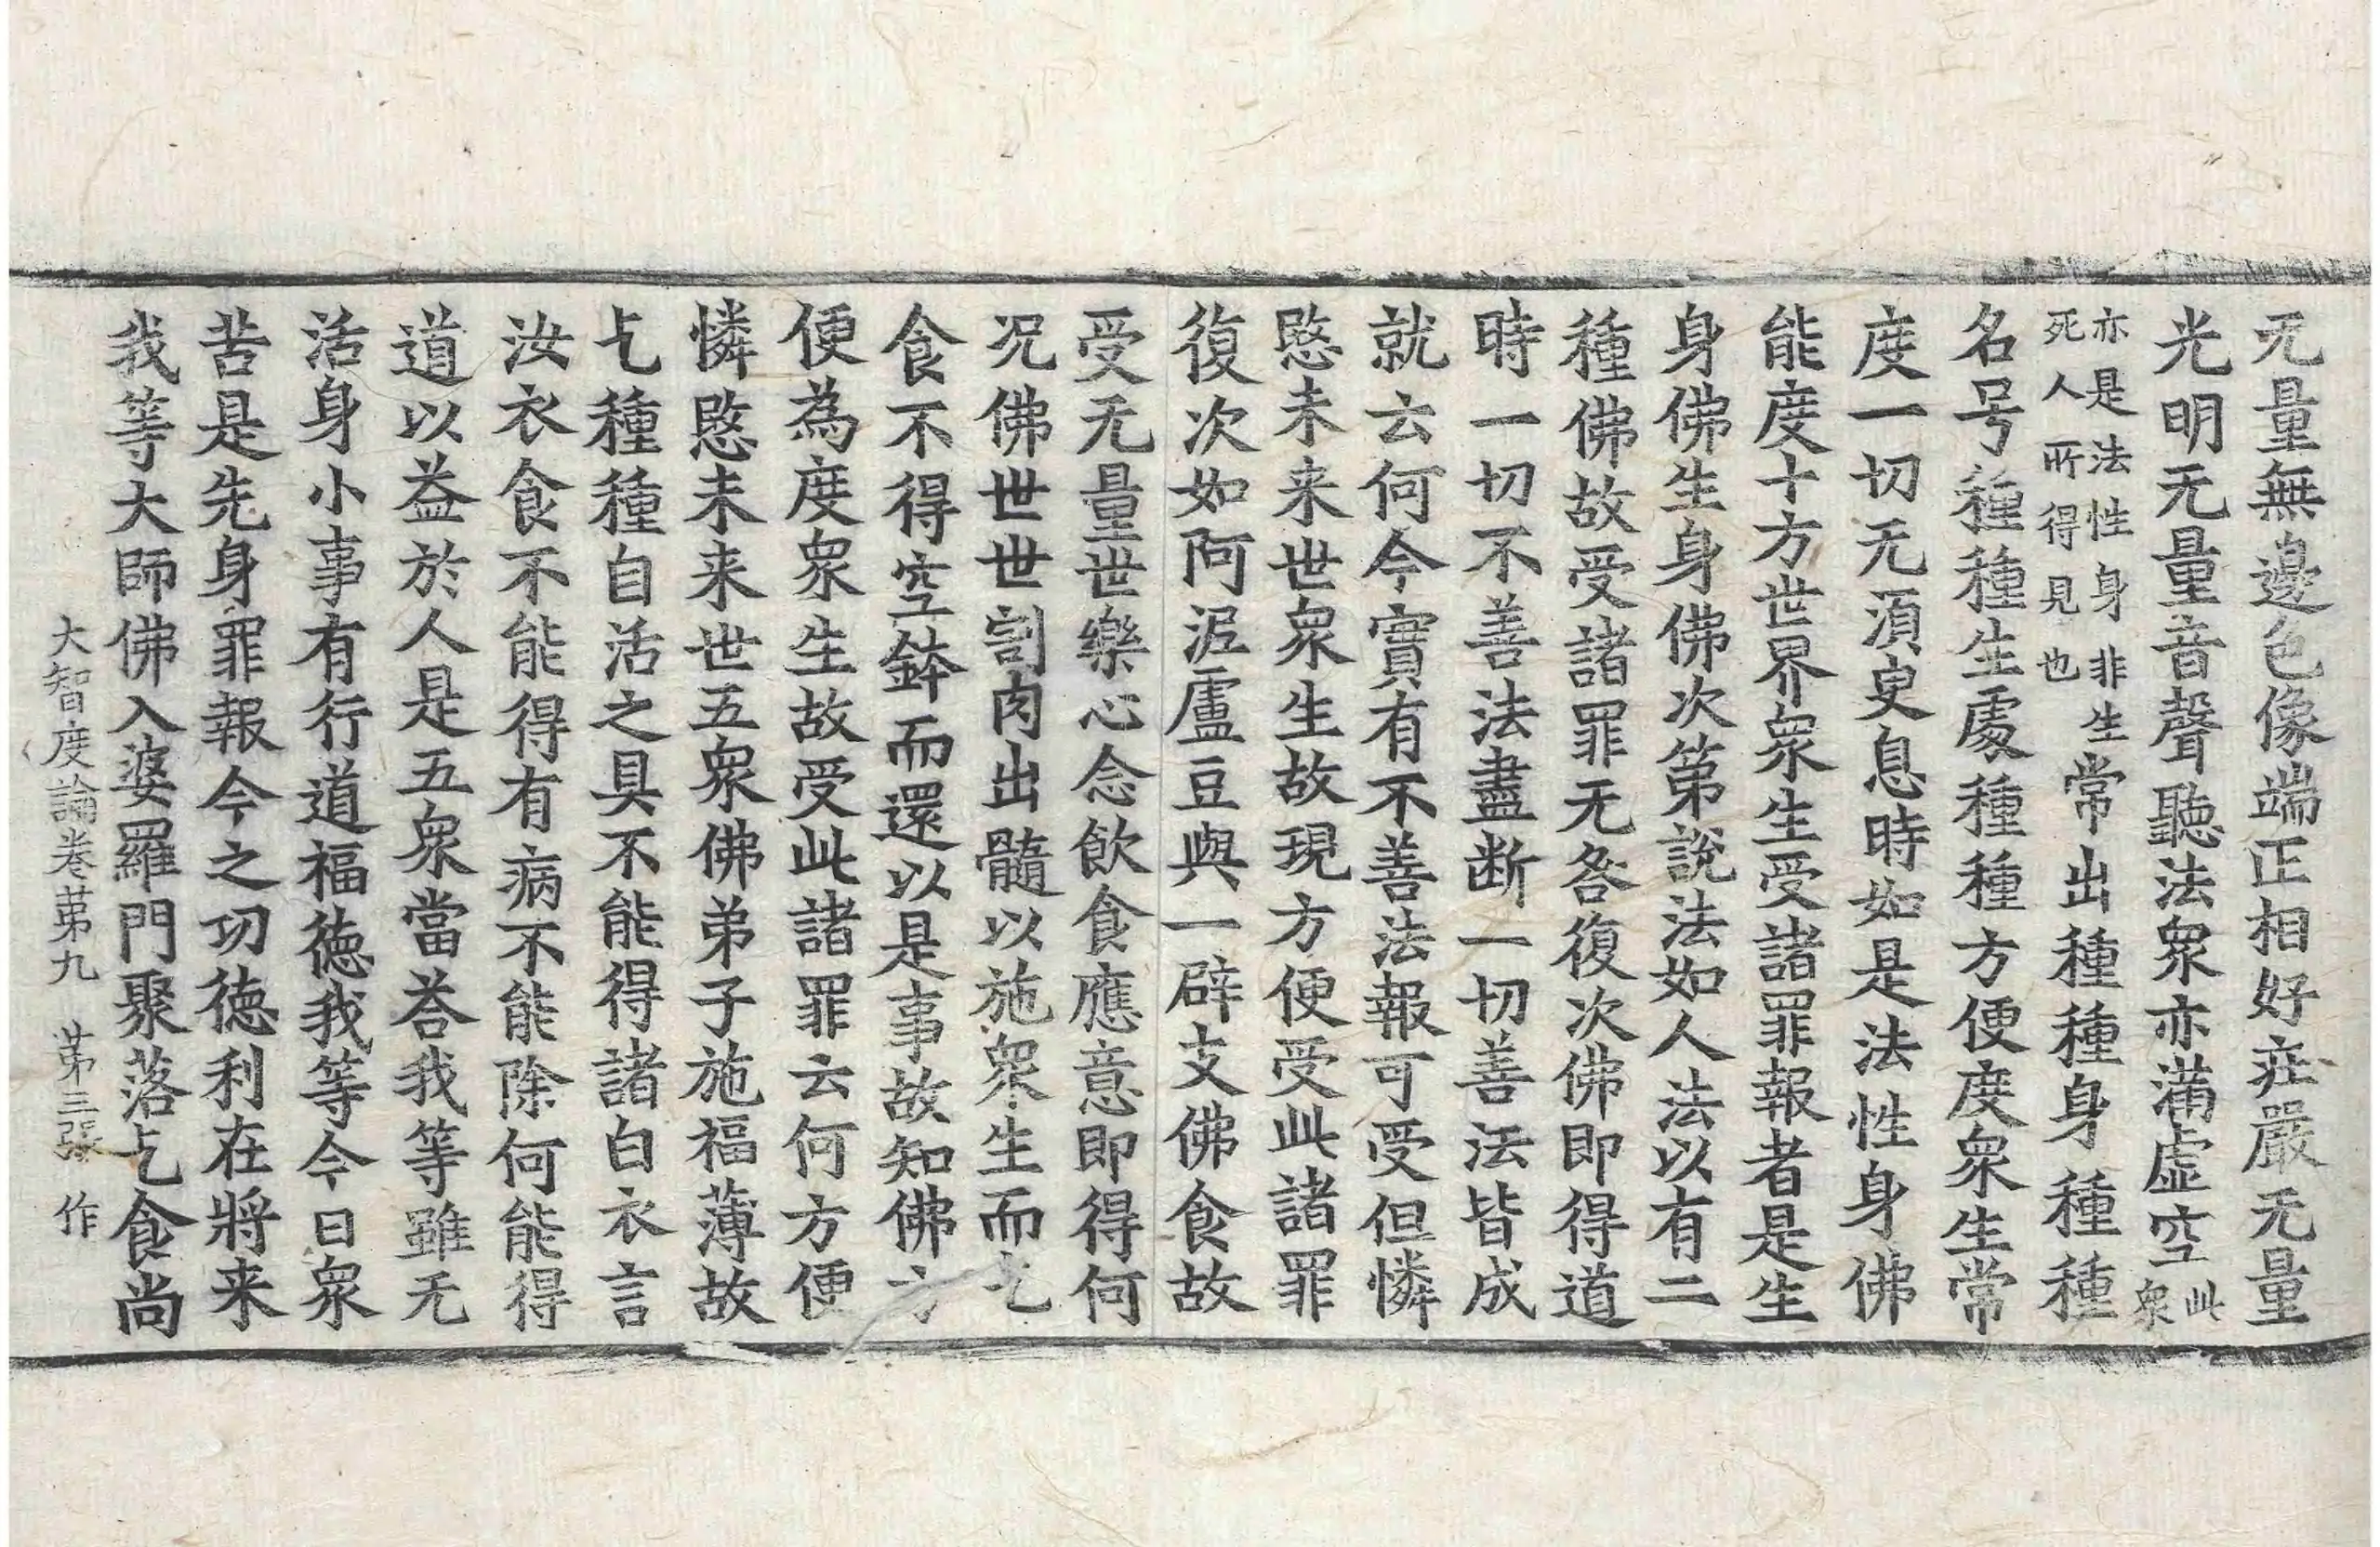 无量無邊色像端正相好莊嚴无量
光明无量音聲聽法衆亦滿虛空此衆
亦是法性身非生死人所得見也常出種種身種種
名号種種生處種種方便度衆生常
度一切无湏臾息時如是法性身佛
能度十方世界衆生受諸罪報者是生
身佛生身佛次第說法如人法以有二
種佛故受諸罪无咎復次佛即得道
時一切不善法盡断一切善法皆成
就云何今實有不善法報可受但憐
愍未来世衆生故現方便受此諸罪
復次如阿泥盧豆與一辟支佛食故
受无量世樂心念飲食應意即得何
况佛世世割肉出髓以施衆生而乞
食不得空鉢而還以是事故知佛方
便為度衆生故受此諸罪云何方便
憐愍未来世五衆佛弟子施福薄故
乞種種自活之具不能得諸白衣言
汝衣食不能得有病不能除何能得
道以益於人是五衆當荅我等雖无
活身小事有行道福德我等今日衆
苦是先身罪報今之功德利在將来
我等大師佛入婆羅門聚落乞食尚
大智度論卷第九 第三張 作